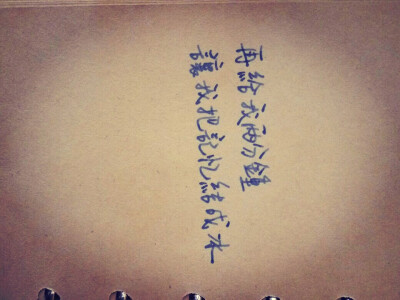 再給我兩分鐘
讓我把記忆結成冰